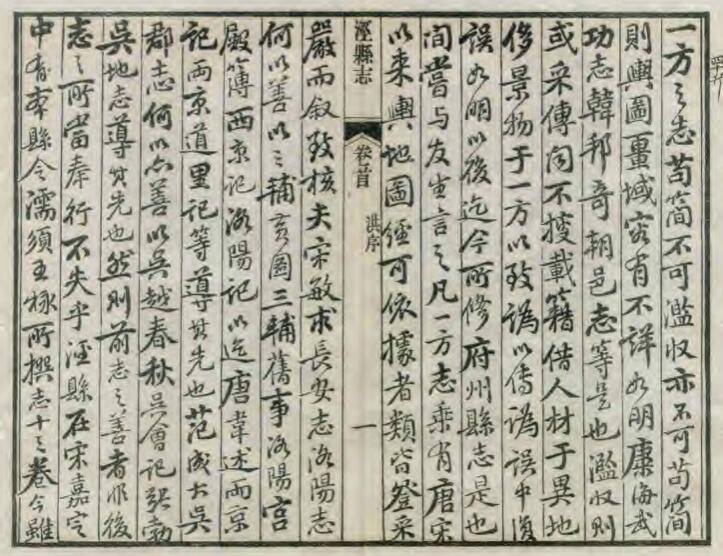 一方之志苟简不可濫收亦不可苟简
則輿圖畺域容有不詳如明康海武
功志韓邦奇朝邑志等是也濫收則
或采傳聞不搜載籍借人材于異地
侈景物于一方以致譌以傳譌誤中復
誤如明以後迄今所修府州縣志是也
间嘗与友生言之凡一方志乘有唐宋
以来輿地圖經可依據者類皆登采
涇縣志 卷首 洪序 一
嚴而叙致核夫宋敏求長安志洛陽志
何以善以三輔黃圖三輔舊事洛陽宮
殿簿西京記洛陽記以迄唐韋述兩京
記兩京道里記等導其先也范成大吳
郡志何以亦善以吳越春秋吳會記張勃
吳地志導其先也然則前志之善者非後
志之所當奉行不失乎涇縣在宋嘉定
中有本縣令濡須王栐所撰志十三卷今雖